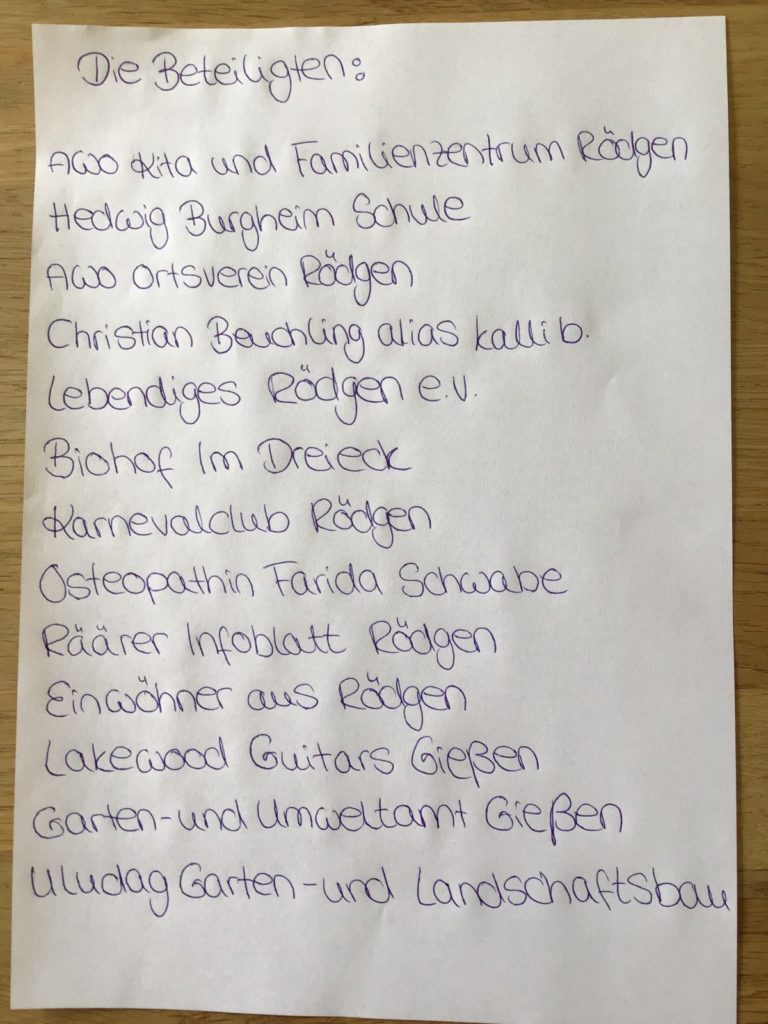 Die Beteiligten:
AWO Kita und Familienzentrum Rödgen
Hedwig Burgheim Schule
AWO Ortsverein Rödgen
Christian Beuchling alias kalli b.
Lebendiges Rödgen e.V.
Biohof Im Dreieck
Karnevalclub Rödgen
Osteopathin Farida Schwabe
Räärer Infoblatt Rödgen
Einwöhner aus Rödgen
Lakewood Guitars Gießen
Garten-und Umweltamt Gießen
Uludag Garten-und Landschaftsbau